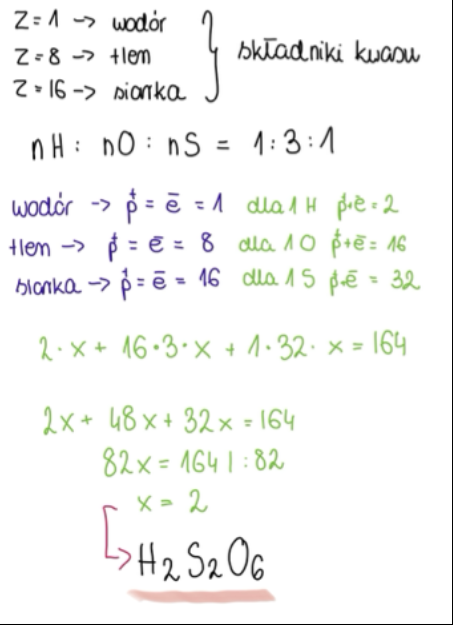 Z = 1 -> wodór
Z = 8 -> tlen
Z = 16 -> siarka
} składniki kwasu
nH : nO : nS = 1:3:1
wodór -> p⁺ = e⁻ = 1 dla 1 H p⁺+e⁻ = 2
tlen -> p⁺ = e⁻ = 8 dla 1 O p⁺+e⁻ = 16
siarka -> p⁺ = e⁻ = 16 dla 1 S p⁺+e⁻ = 32
2·x + 16·3·x + 1·32·x = 164
2x + 48x + 32x = 164
82x = 164 | :82
x = 2
H₂S₂O₆